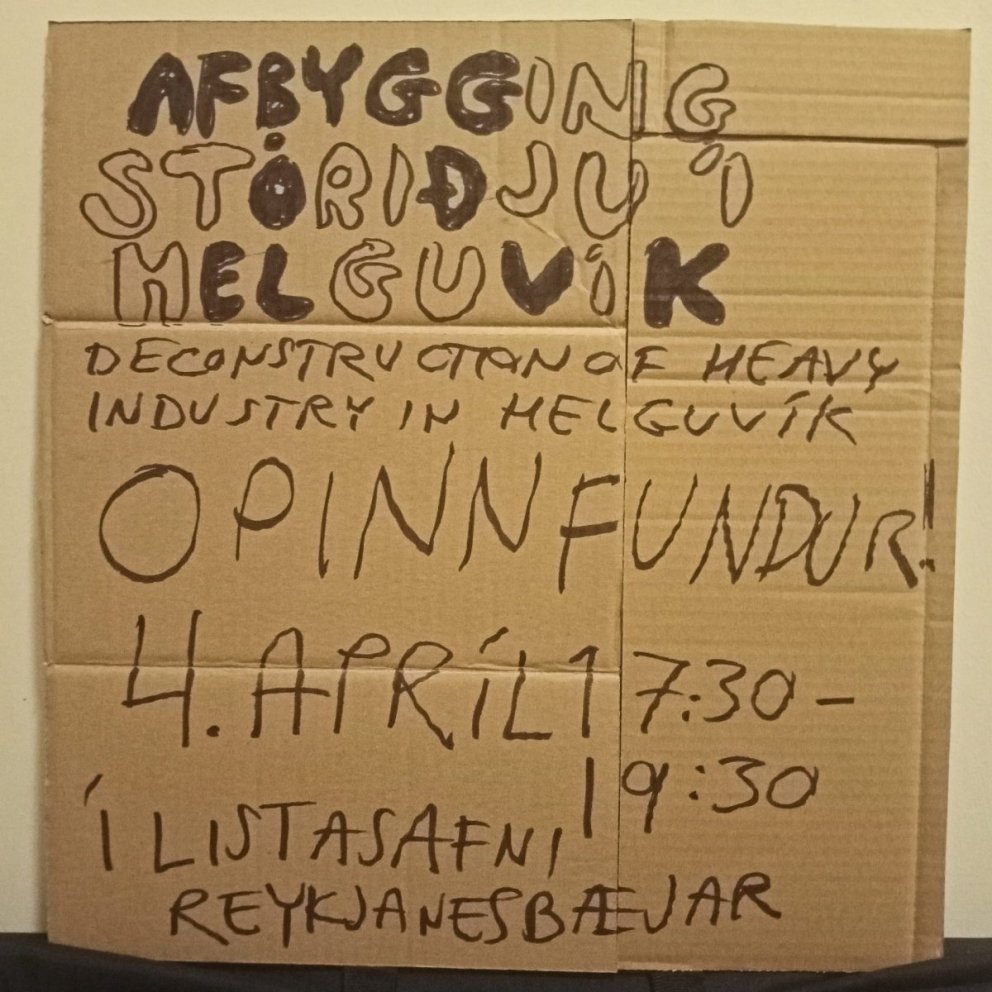 AFBYGGING
STÓRIÐJU Í
HELGUVÍK
DECONSTRUCTION OF HEAVY
INDUSTRY IN HELGUVÍK
OPINN FUNDUR!
4. APRÍL 17:30 –
19:30
Í LISTASAFNI
REYKJANESBÆJAR